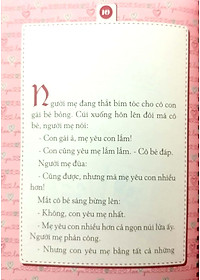 Người mẹ đang thắt bím tóc cho cô con
gái bé bỏng. Cúi xuống hôn lên đôi má cô
bé, người mẹ nói:
- Con gái à, mẹ yêu con lắm!
- Con cũng yêu mẹ lắm lắm. - Cô bé đáp.
Người mẹ đùa:
- Cũng được, nhưng mà mẹ yêu con nhiều
hơn!
Mắt cô bé sáng bừng lên:
- Không, con yêu mẹ nhất.
- Mẹ yêu con nhiều hơn cả ngọn núi lửa ấy.
Người mẹ phản công.
- Nhưng con yêu mẹ bằng tất cả những